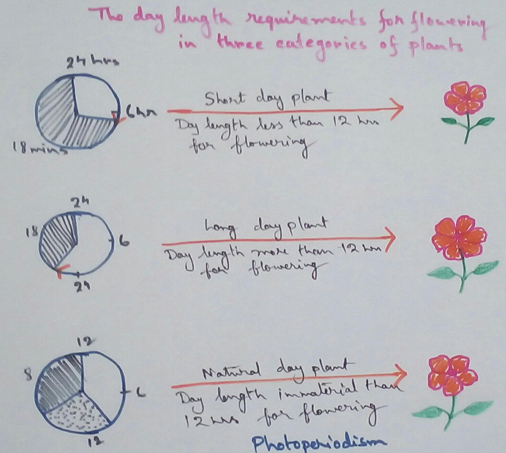 The day length requirements for flowering
in three categories of plants
24 hrs
6 hr
18 mins
Short day plant
Day length less than 12 hrs
for flowering
24
18
6
24
Long day plant
Day length more than 12 hrs
for flowering
12
8
6
12
Natural day plant
Day length immaterial than
12 hrs for flowering
Photoperiodism